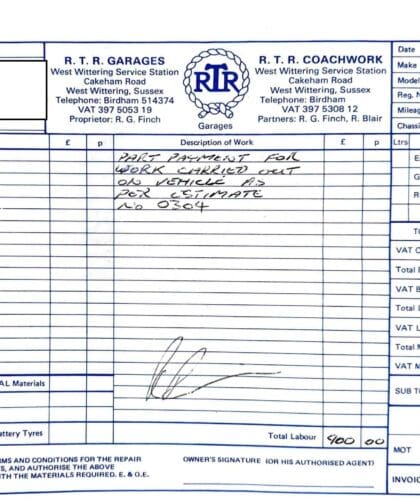 R. T. R. GARAGES
West Wittering Service Station
Cakeham Road
West Wittering, Sussex
Telephone: Birdham 514374
VAT 397 5053 19
Proprietor: R. G. Finch
RTR
Garages
R. T. R. COACHWORK
West Wittering Service Station
Cakeham Road
West Wittering, Sussex
Telephone: Birdham
VAT 397 5308 12
Partners: R. G. Finch, R. Blair
Date
Make
Model
Reg. N
Mileag
Chassi
£ p Description of Work £ p Ltrs
PART PAYMENT FOR
WORK CARRIED OUT
ON VEHICLE AS
PER ESTIMATE
No 0304
E
G
R
TO
VAT O
Total
VAT B
Total
VAT L
Total
VAT M
SUB TO
AL Materials
attery Tyres
Total Labour 900 00
MOT
RMS AND CONDITIONS FOR THE REPAIR
S, AND AUTHORISE THE ABOVE
TH THE MATERIALS REQUIRED. E. & O.E.
OWNER'S SIGNATURE (OR HIS AUTHORISED AGENT)
INVOI